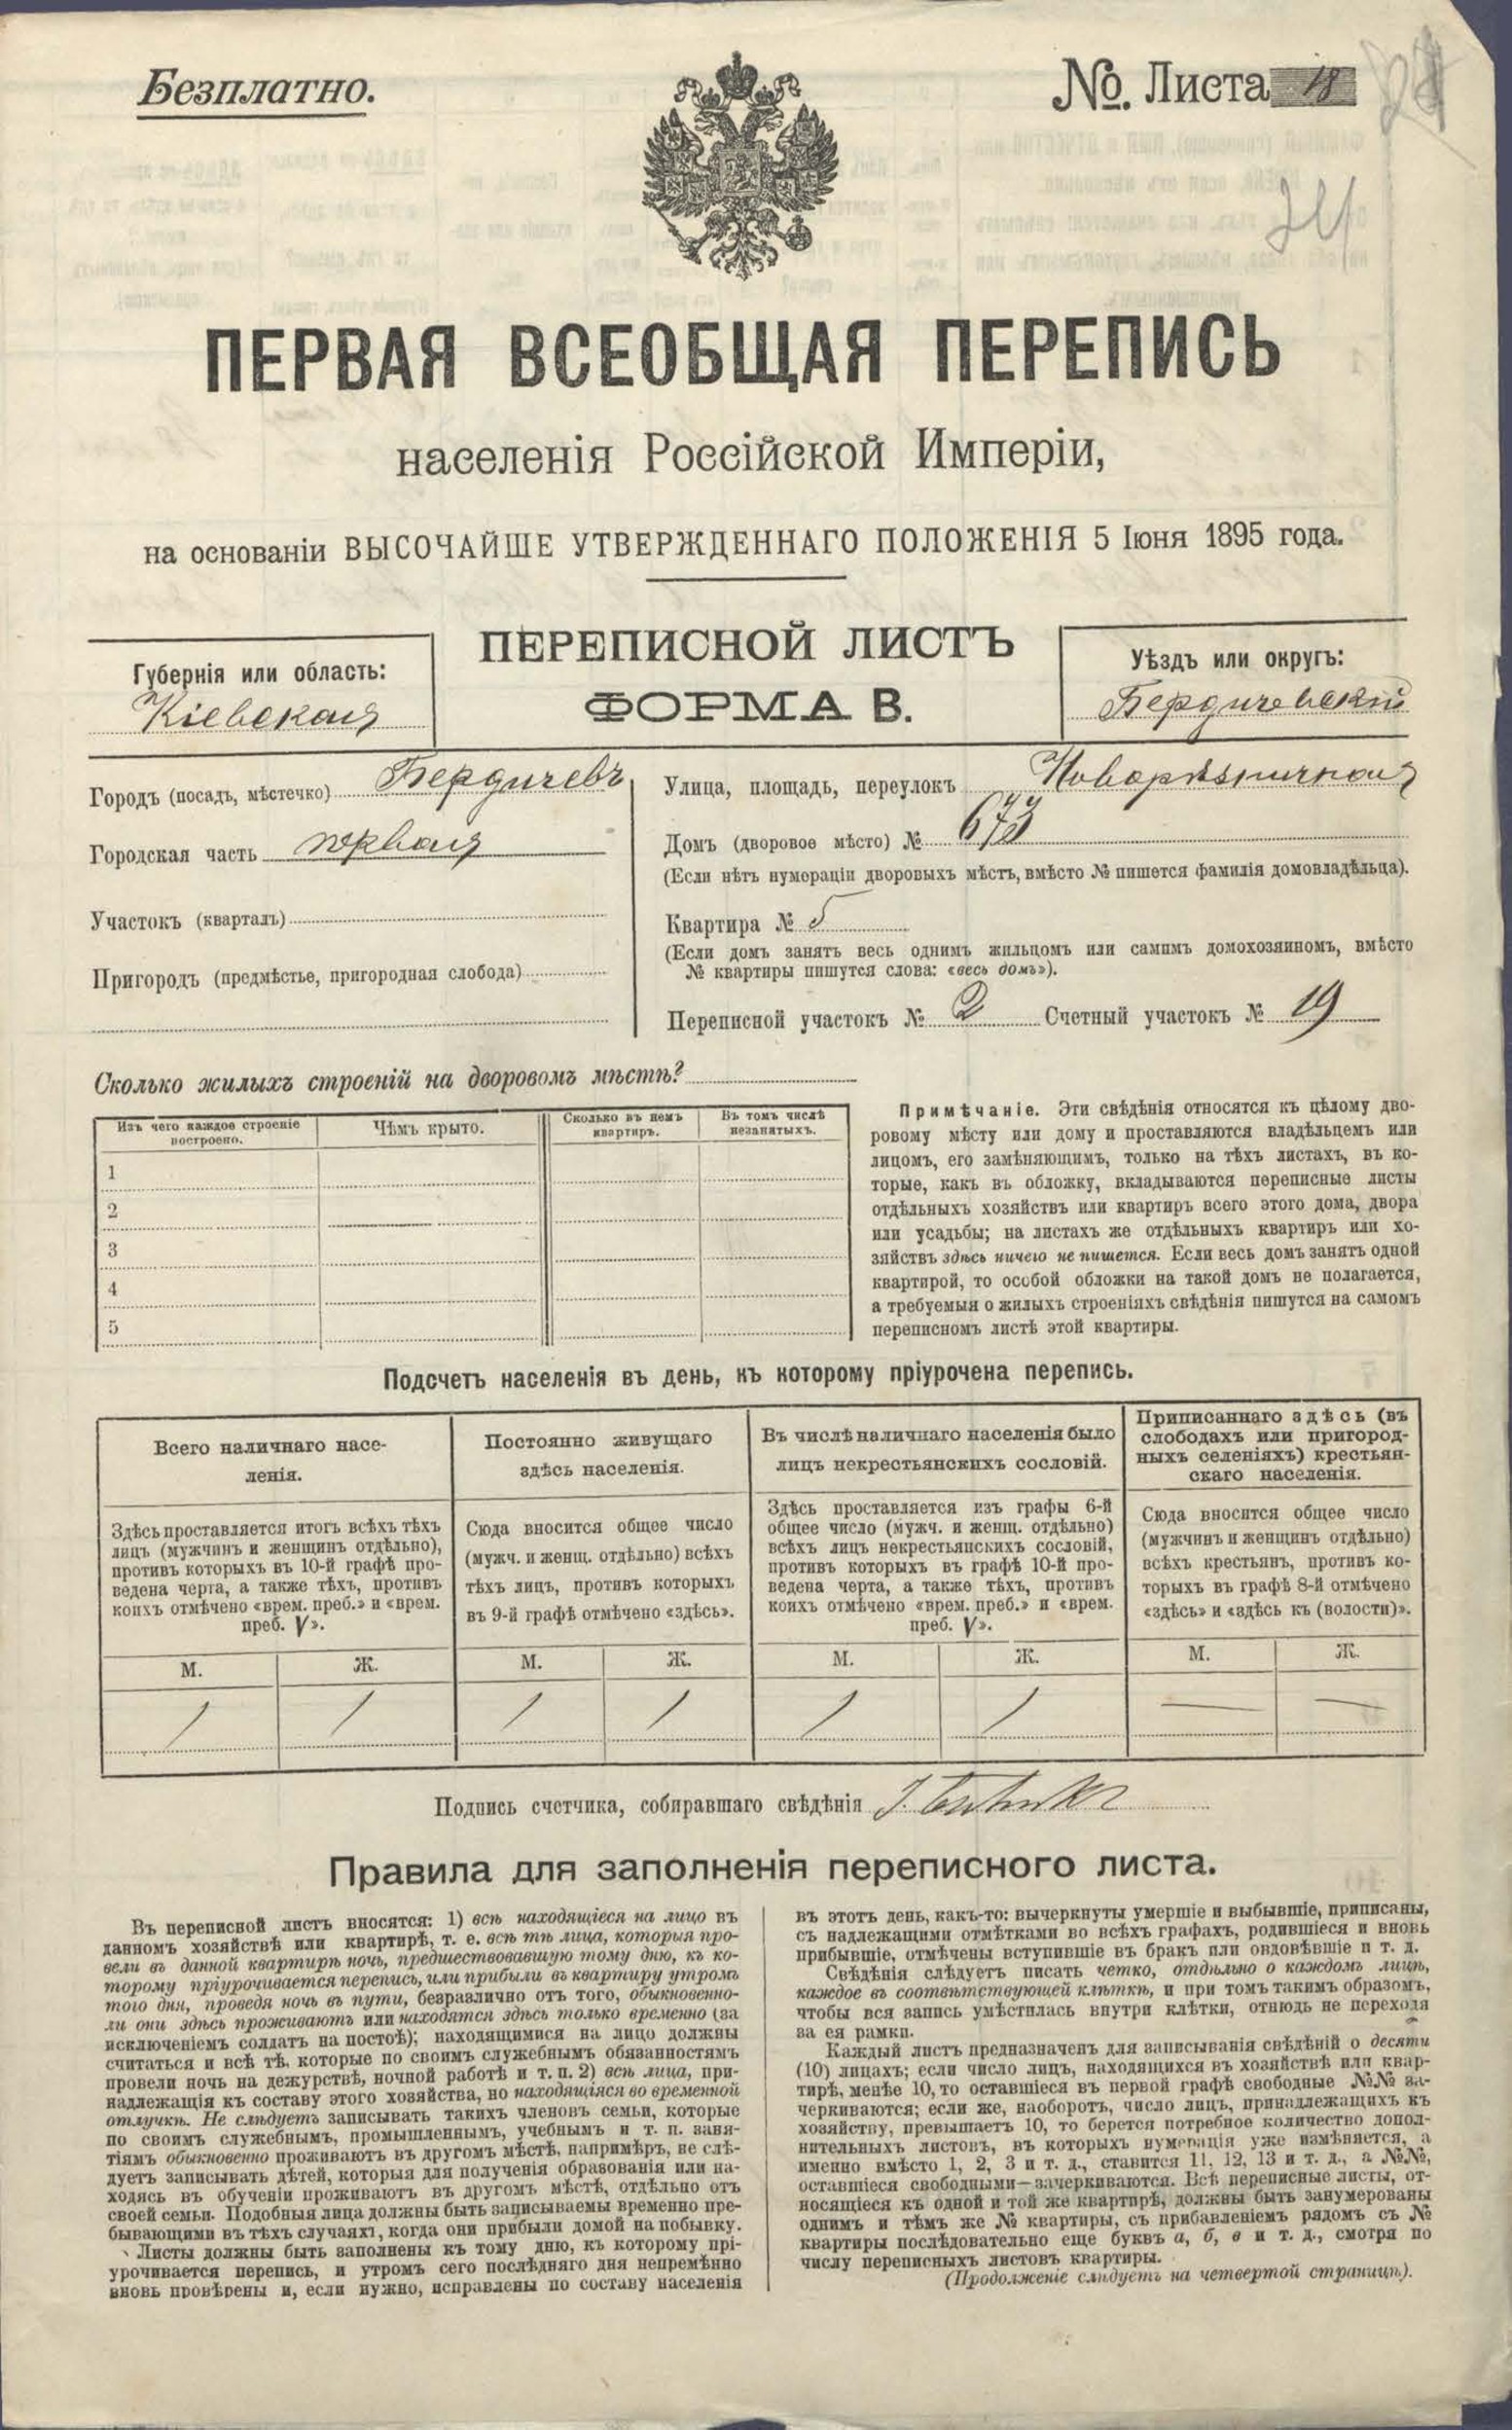 Безплатно.
№. Листа 18
24
ПЕРВАЯ ВСЕОБЩАЯ ПЕРЕПИСЬ
населенія Россійской Имперіи,
на основаніи ВЫСОЧАЙШЕ УТВЕРЖДЕННАГО ПОЛОЖЕНІЯ 5 Іюня 1895 года.
ПЕРЕПИСНОЙ ЛИСТЪ
ФОРМА В.
Губернія или область:
Кіевская
Уѣздъ или округъ:
Бердичевскій
Городъ (посадъ, мѣстечко) Бердичевъ
Городская часть первая
Участокъ (кварталъ)
Пригородъ (предмѣстье, пригородная слобода)
Улица, площадь, переулокъ
Домъ (дворовое мѣсто) № 673
(Если нѣтъ нумераціи дворовыхъ мѣстъ, вмѣсто № пишется фамилія домовладѣльца).
Квартира № 5
(Если домъ занятъ весь однимъ жильцомъ или самимъ домохозяиномъ, вмѣсто
№ квартиры пишутся слова: «весь домъ»).
Переписной участокъ № 2 Счетный участокъ № 19
Сколько жилыхъ строеній на дворовомъ мѣстѣ?
Изъ чего каждое строеніе
построено.
Чѣмъ крыто.
Сколько въ немъ
квартиръ.
Въ томъ числѣ
незанятыхъ.
1
2
3
4
5
Примѣчаніе. Эти свѣдѣнія относятся къ цѣлому дво-
ровому мѣсту или дому и проставляются владѣльцемъ или
лицомъ, его замѣняющимъ, только на тѣхъ листахъ, въ ко-
торые, какъ въ обложку, вкладываются переписные листы
отдѣльныхъ хозяйствъ или квартиръ всего этого дома, двора
или усадьбы; на листахъ же отдѣльныхъ квартиръ или хо-
зяйствъ здѣсь ничего не пишется. Если весь домъ занятъ одной
квартирой, то особой обложки на такой домъ не полагается,
а требуемыя о жилыхъ строеніяхъ свѣдѣнія пишутся на самомъ
переписномъ листѣ этой квартиры.
Подсчетъ населенія въ день, къ которому пріурочена перепись.
Всего наличнаго насе-
ленія.
Здѣсь проставляется итогъ всѣхъ тѣхъ
лицъ (мужчинъ и женщинъ отдѣльно),
противъ которыхъ въ 10-й графѣ про-
ведена черта, а также тѣхъ, противъ
коихъ отмѣчено «врем. преб.» и «врем.
преб. V».
Постоянно живущаго
здѣсь населенія.
Сюда вносится общее число
(мужч. и женщ. отдѣльно) всѣхъ
тѣхъ лицъ, противъ которыхъ
въ 9-й графѣ отмѣчено «здѣсь».
Въ числѣ наличнаго населенія было
лицъ некрестьянскихъ сословій.
Здѣсь проставляется изъ графы 6-й
общее число (мужч. и женщ. отдѣльно)
всѣхъ лицъ некрестьянскихъ сословій,
противъ которыхъ въ графѣ 10-й про-
ведена черта, а также тѣхъ, противъ
коихъ отмѣчено «врем. преб.» и «врем.
преб. V».
Приписаннаго здѣсь (въ
слободахъ или пригород-
ныхъ селеніяхъ) крестьян-
скаго населенія.
Сюда вносится общее число
(мужчинъ и женщинъ отдѣльно)
всѣхъ крестьянъ, противъ ко-
торыхъ въ графѣ 8-й отмѣчено
«здѣсь» и «здѣсь къ (волости)».
М. Ж. М. Ж. М. Ж. М. Ж.
1 1 1 1 1 1 — —
Подпись счетчика, собиравшаго свѣдѣнія
Правила для заполненія переписного листа.
Въ переписной листъ вносятся: 1) всѣ находящіеся на лицо въ
данномъ хозяйствѣ или квартирѣ, т. е. всѣ тѣ лица, которыя про-
вели въ данной квартирѣ ночь, предшествовавшую тому дню, къ ко-
торому пріурочивается перепись, или прибыли въ квартиру утромъ
того дня, проведя ночь въ пути, безразлично отъ того, обыкновенно-
ли они здѣсь проживаютъ или находятся здѣсь только временно (за
исключеніемъ солдатъ на постоѣ); находящимися на лицо должны
считаться и всѣ тѣ, которые по своимъ служебнымъ обязанностямъ
провели ночь на дежурствѣ, ночной работѣ и т. п. 2) всѣ лица, при-
надлежащія къ составу этого хозяйства, но находящіяся во временной
отлучкѣ. Не слѣдуетъ записывать такихъ членовъ семьи, которые
по своимъ служебнымъ, промышленнымъ, учебнымъ и т. п. заня-
тіямъ обыкновенно проживаютъ въ другомъ мѣстѣ, напримѣръ, не слѣ-
дуетъ записывать дѣтей, которыя для полученія образованія или на-
ходясь въ обученіи проживаютъ въ другомъ мѣстѣ, отдѣльно отъ
своей семьи. Подобныя лица должны быть записываемы временно пре-
бывающими въ тѣхъ случаяхъ, когда они прибыли домой на побывку.
Листы должны быть заполнены къ тому дню, къ которому прі-
урочивается перепись, и утромъ сего послѣдняго дня непремѣнно
вновь провѣрены и, если нужно, исправлены по составу населенія
въ этотъ день, какъ-то: вычеркнуты умершіе и выбывшіе, приписаны,
съ надлежащими отмѣтками во всѣхъ графахъ, родившіеся и вновь
прибывшіе, отмѣчены вступившіе въ бракъ или овдовѣвшіе и т. д.
Свѣдѣнія слѣдуетъ писать четко, отдѣльно о каждомъ лицѣ,
каждое въ соотвѣтствующей клѣткѣ, и при томъ такимъ образомъ,
чтобы вся запись умѣстилась внутри клѣтки, отнюдь не переходя
за ея рамки.
Каждый листъ предназначенъ для записыванія свѣдѣній о десяти
(10) лицахъ; если число лицъ, находящихся въ хозяйствѣ или квар-
тирѣ, менѣе 10, то оставшіеся въ первой графѣ свободные №№ за-
черкиваются; если же, наоборотъ, число лицъ, принадлежащихъ къ
хозяйству, превышаетъ 10, то берется потребное количество допол-
нительныхъ листовъ, въ которыхъ нумерація уже измѣняется, а
именно вмѣсто 1, 2, 3 и т. д., ставится 11, 12, 13 и т. д., а №№,
оставшіеся свободными—зачеркиваются. Всѣ переписные листы, от-
носящіеся къ одной и той же квартирѣ, должны быть занумерованы
однимъ и тѣмъ же № квартиры, съ прибавленіемъ рядомъ съ №
квартиры послѣдовательно еще буквъ а, б, в и т. д., смотря по
числу переписныхъ листовъ квартиры.
(Продолженіе слѣдуетъ на четвертой страницѣ).